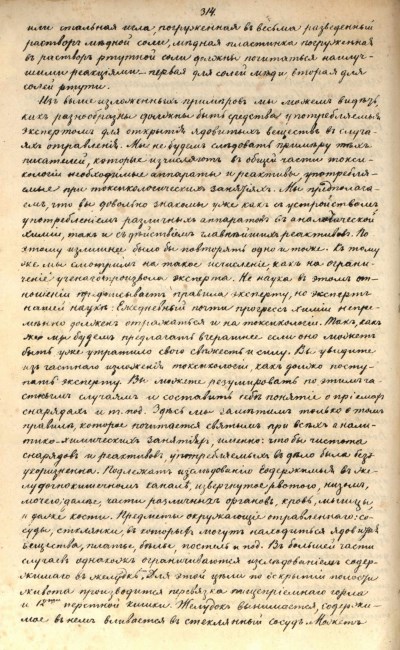 314.
или стальная игла погруженная въ весьма разведенный
растворъ мѣдной соли, мѣдная пластинка погруженная
въ растворъ ртутной соли должны почитаться наилуч-
шими реакціями первая для солей мѣди вторая для
солей ртути.
Изъ выше изложенныхъ примѣровъ мы можемъ видѣть,
какъ разнообразны должны быть средства употребляемыя
экспертомъ для открытія ядовитыхъ веществъ въ случа-
яхъ отравленія. Мы не будемъ слѣдовать примѣру тѣхъ
писателей, которые исчисляютъ въ общей части токси-
кологіи необходимые аппараты и реактивы употребля-
емые при токсикологическихъ занятіяхъ. Мы предполага-
емъ, что вы довольно знакомы уже какъ съ устройствомъ
употребленіемъ различныхъ аппаратовъ въ аналитической
химіи, такъ и съ дѣйствіемъ главнѣйшихъ реактивовъ. По
этому излишнее было бы повторять одно и тоже. Къ тому
же мы смотримъ на такое исчисленіе какъ на ограни-
ченіе ученаго произвола эксперта. Не наука въ этомъ от-
ношеніи предписываетъ правила эксперту, но экспертъ
нашей наукѣ. Ежедневный почти прогрессъ химіи непре-
мѣнно долженъ отражаться и на токсикологіи. Такъ какъ
же мы будемъ предлагать вчерашнее если оно можетъ
быть уже утратило свою свѣжесть и силу. Вы увидите
изъ частнаго изложенія токсикологіи, какъ должно посту-
пать эксперту. Вы можете резумировать по этимъ ча-
стнымъ случаямъ и составить себѣ понятіе о пріемахъ
снарядахъ и т. под. Здѣсь мы замѣтимъ только о томъ
правилѣ, которое почитается святымъ при всѣхъ анали-
тико-химическихъ занятіяхъ, именно: что бы чистота
снарядовъ и реактивовъ, употребляемыхъ въ дѣло была безъ-
укоризненна. Подлежатъ изслѣдованію содержимыя въ же-
лудочнокишечномъ каналѣ, извергнутое рвотою, низомъ,
мочею, далѣе, части различныхъ органовъ, кровь, мышцы
и даже кости. Предметы окружающіе отравленнаго: со-
суды, стклянки, въ которыхъ могутъ находиться ядовитыя
вещества, платье, бѣлье, постель и под. Въ большей части
случаевъ однакожъ ограничиваются изслѣдованіемъ содер-
жимаго въ желудкѣ. Для этой цѣли по вскрытіи полости
живота производится перевязка пищепріемнаго горла
и 12ти перстной кишки. Желудокъ вынимается, содержи-
мое въ немъ вливается въ стеклянный сосудъ. Можетъ